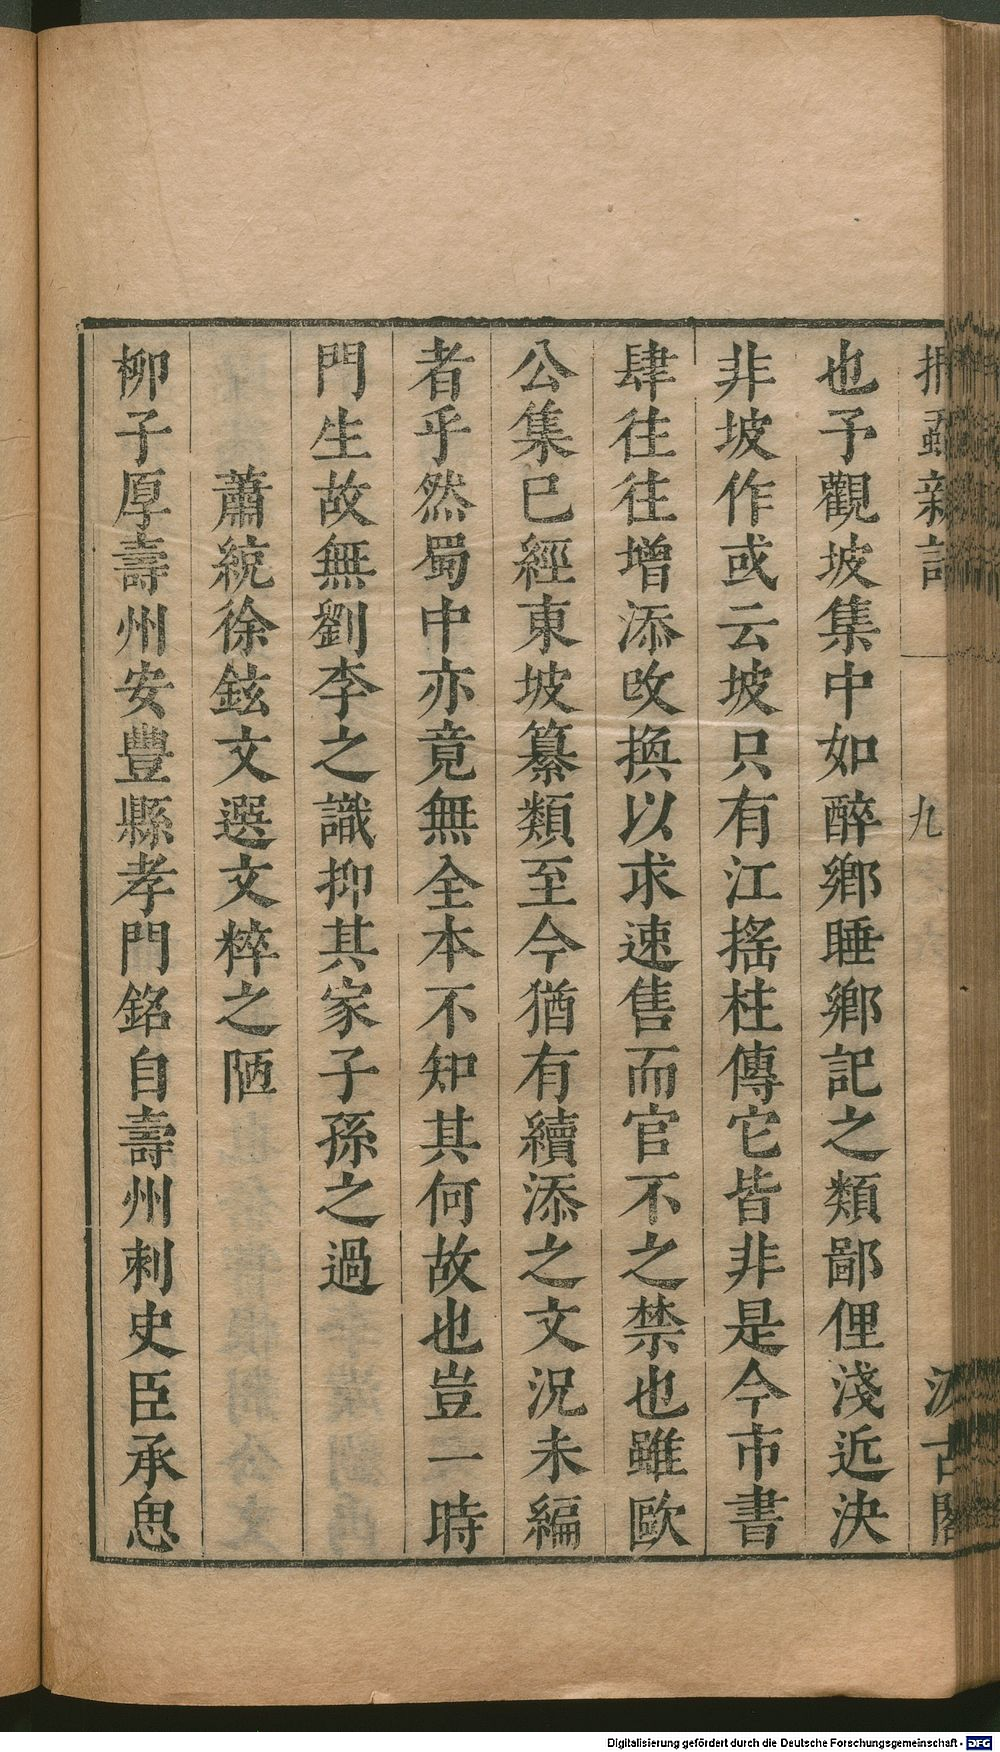 捫蝨新話 九 汲古閣
也予觀坡集中如醉鄉睡鄉記之類鄙俚淺近決
非坡作或云坡只有江搖柱傳它皆非是今市書
肆往往增添改換以求速售而官不之禁也雖歐
公集已經東坡纂類至今猶有續添之文況未編
者乎然蜀中亦竟無全本不知其何故也豈一時
門生故無劉李之識抑其家子孫之過
蕭統徐鉉文選文粹之陋
柳子厚壽州安豐縣孝門銘自壽州刺史臣承思
Digitalisierung gefördert durch die Deutsche Forschungsgemeinschaft - DFG